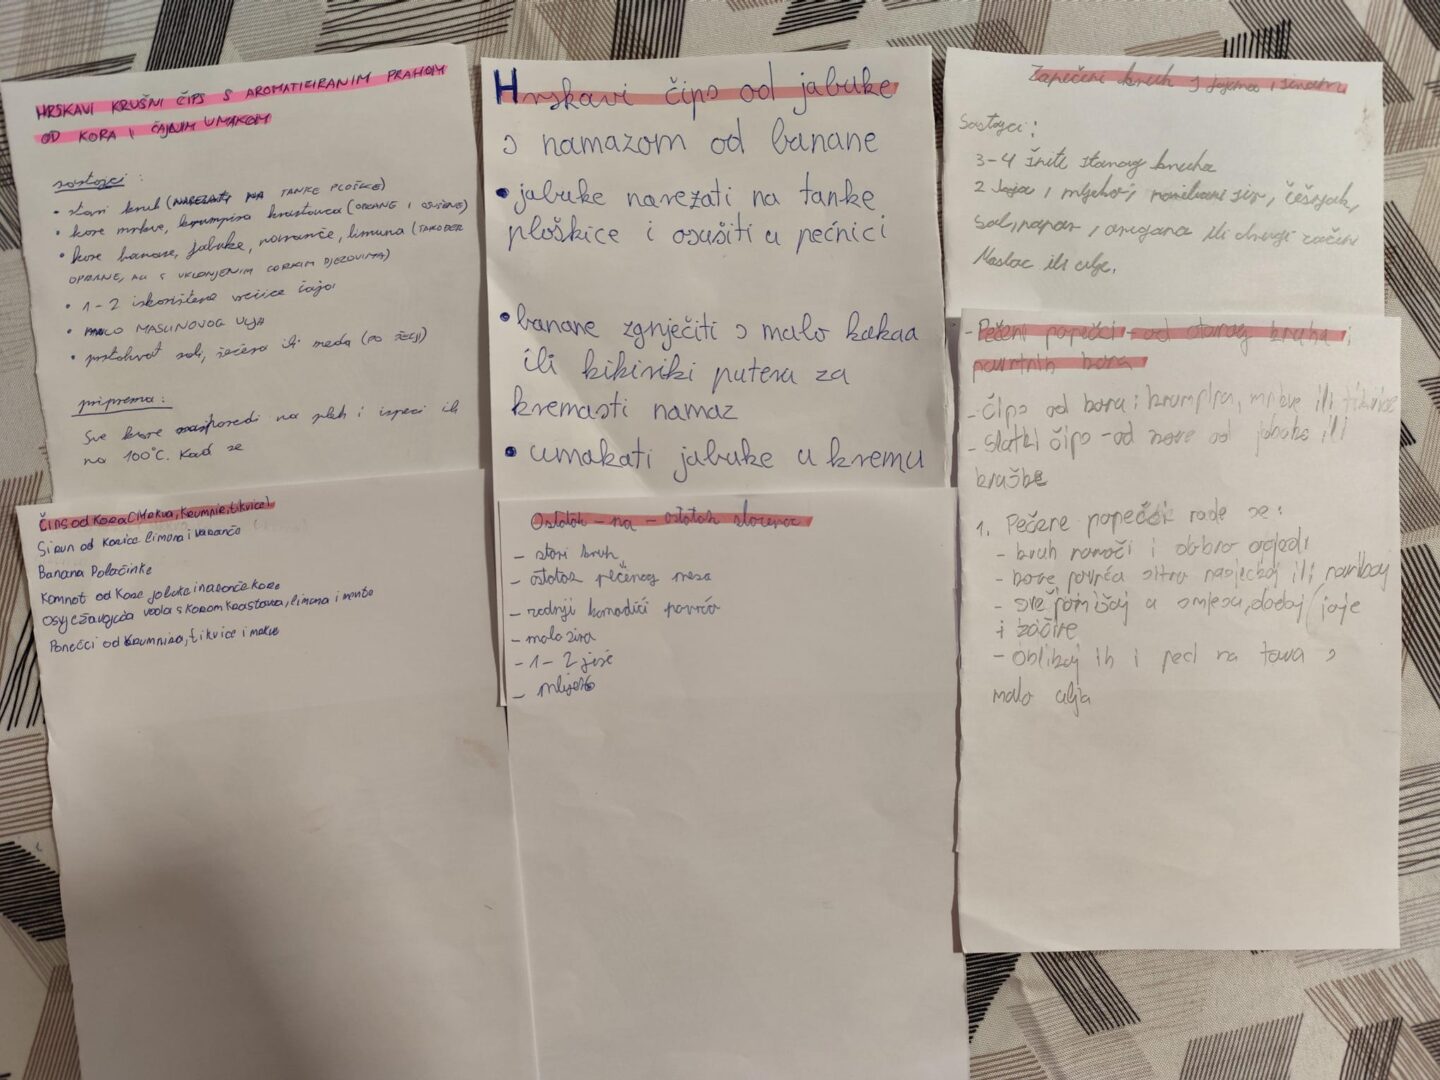 HRSKAVI KRUŠNI ČIPS S AROMATIZIRANIM PRAHOM
OD KORA I ČAJNIM UMAKOM
sastojci:
• stari kruh (NAREZATI NA TANKE PLOŠKE)
• kore mrkve, krumpira krastavca (OPRANE I OSUŠENE)
• kore banane, jabuke, naranče, limuna (TAKOĐER
OPRANE, ALI S UKLONJENIM GORKIM DIJELOVIMA)
• 1-2 iskorištene vrećice čaja
• MALO MASLINOVOG ULJA
• prstohvat soli, šećera ili meda (PO ŽELJI)
priprema:
Sve kore rasporedi na pleh i ispeci ih
na 100°C. Kad se
Hrskavi čips od jabuke
s namazom od banane
• jabuke narezati na tanke
ploškice i osušiti u pećnici
• banane zgnječiti s malo kakaa
ili kikiriki putera za
kremasti namaz
• umakati jabuke u kremu
Zapečeni kruh s jajima i sirom
Sastojci:
3-4 šnite starog kruha
2 jaja, mlijeko, naribani sir, češnjak,
Sol, papar, oregano ili drugi začini
Maslac ili ulje.
ČIPS od KORA (Mrkva, krumpir, tikvice)
Sirup od korice limuna i naranče
Banana Palačinke
Kompot od kore jabuke i naranče kore
Osvježavajuća voda s korom krastavca, limuna i mente
Popečci od krumpira, tikvice i mrkve
Ostatak - na - ostatak složenac
- stari kruh
- ostatak pečenog mesa
- zadnji komadići povrća
- malo sira
- 1-2 jaje
- mlijeko
- Pečeni popečci - od starog kruha i
povrtnih kora
- Čips od kora: krumpira, mrkve ili tikvice
- Slatki čips - od kore od jabuke ili
kruške
1. Pečene popečke rade se:
- kruh namoči i dobro ocjedi
- kore povrća sitno nasjeckaj ili naribaj
- sve pomiješaj u smjesu, dodaj jaje
i začine
- oblikuj ih i peci na tava s
malo ulja